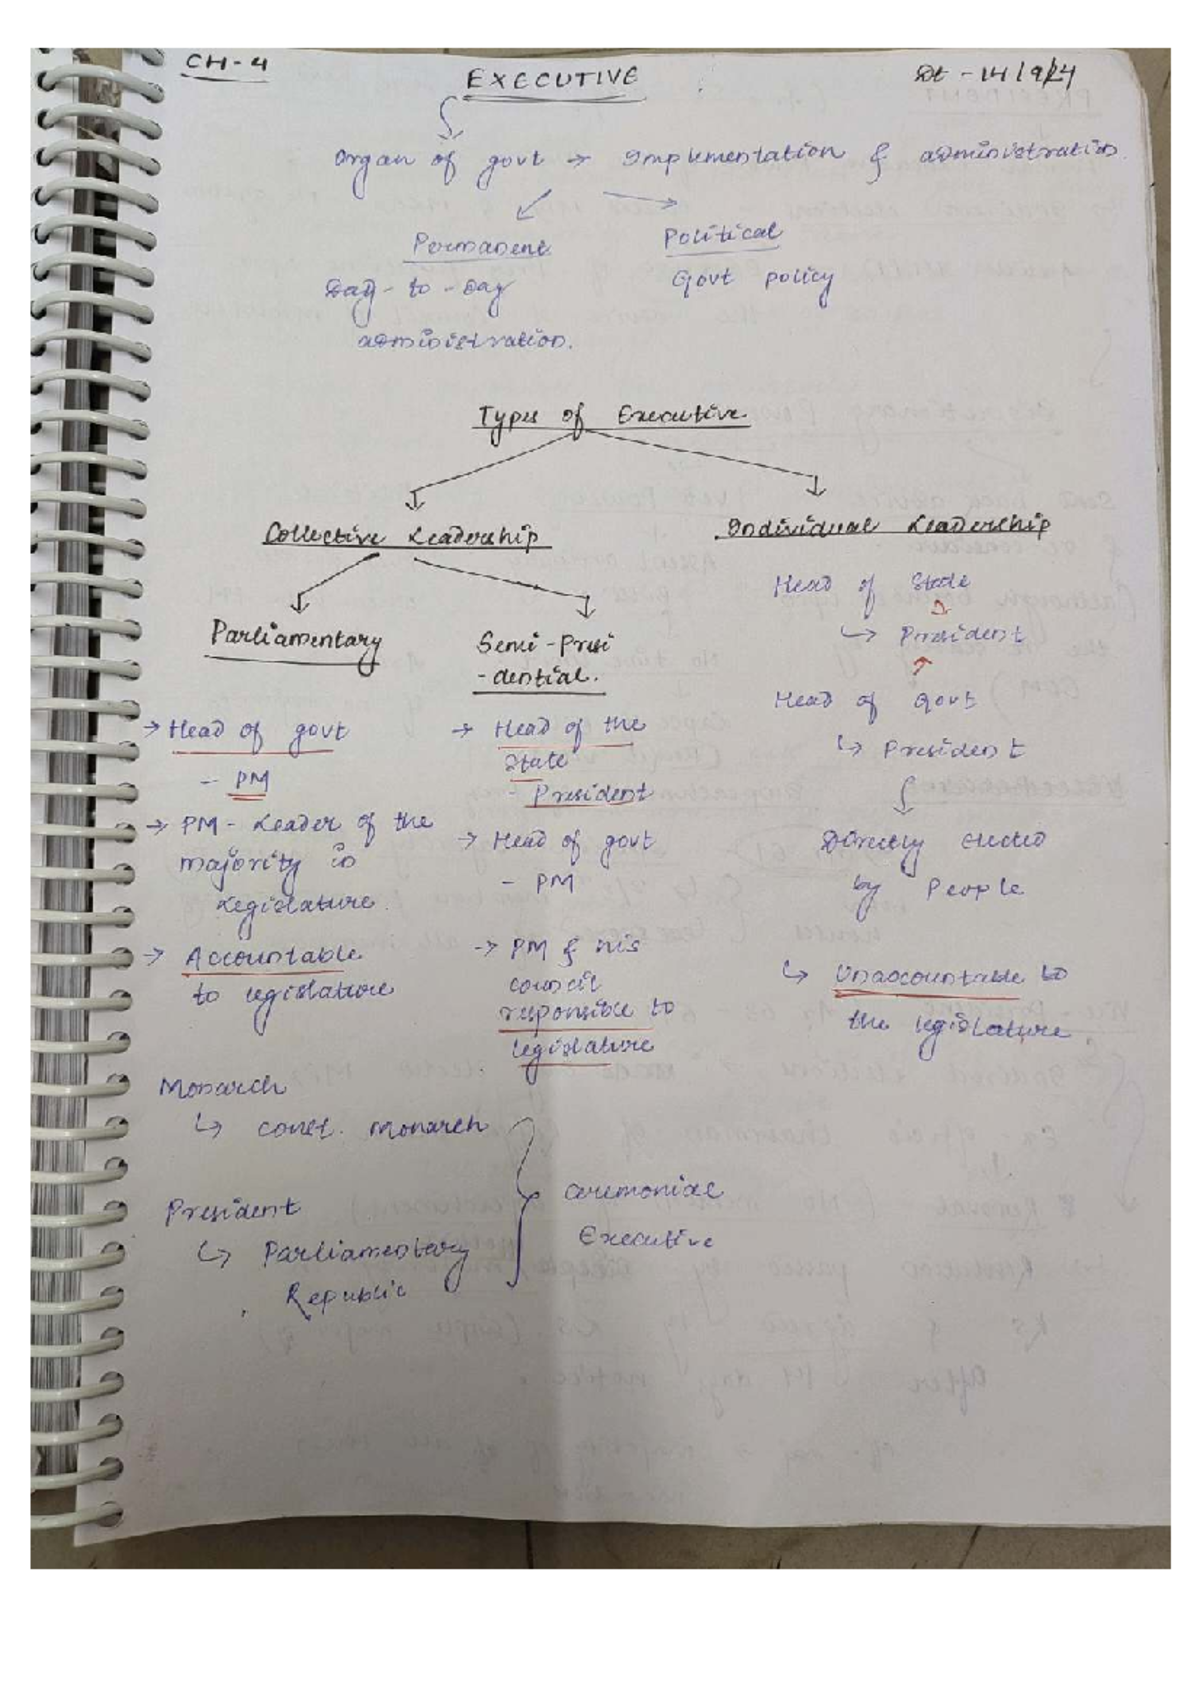 CH-4
EXECUTIVE
Dt - 14/9/24
Organ of govt → Implementation & administration
Permanent
Political
Day-to-Day
Govt policy
administration.
Types of Executive
Collective Leadership
Individual Leadership
Parliamentary
Semi-Presi
-dential.
→ Head of govt
- PM
→ PM - Leader of the
majority in
Legislature.
→ Accountable
to legislature
→ Head of the
State
- President
→ Head of govt
- PM
→ PM & his
council
responsible to
legislature
Head of State
↳ President
Head of govt
↳ President
Directly elected
by People
↳ Unaccountable to
the legislature
Monarch
↳ const. monarch
President
↳ Parliamentary
Republic
Ceremonial
Executive